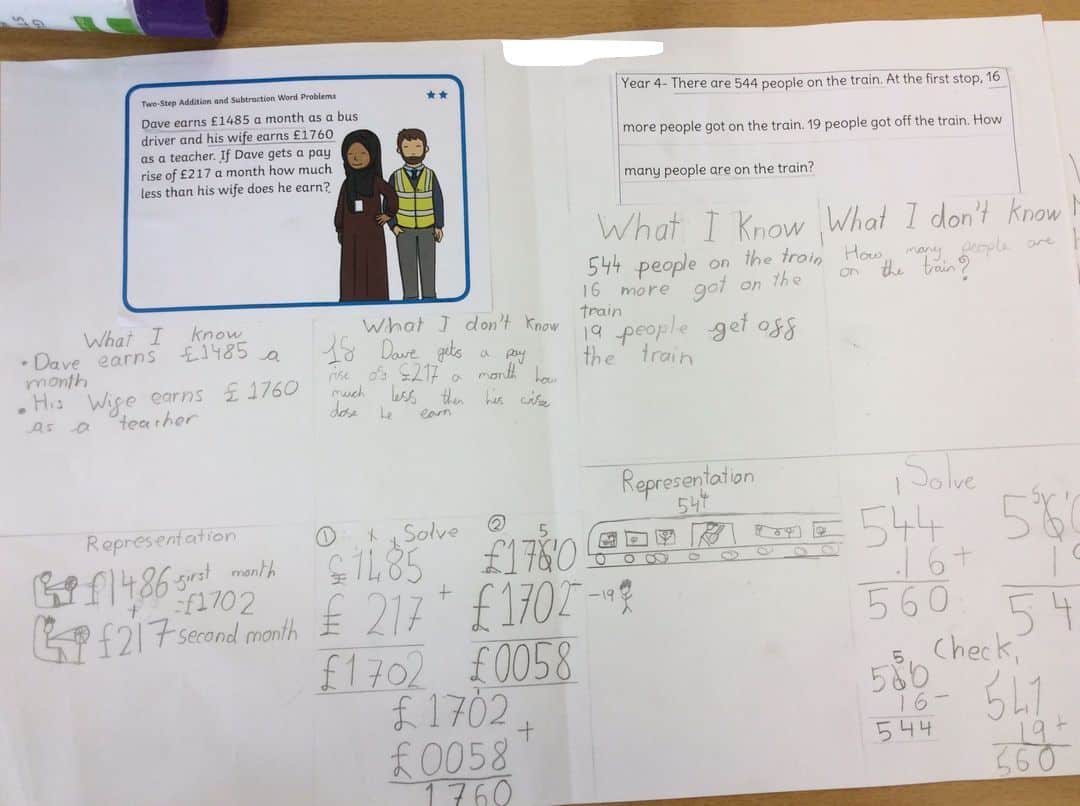 Two-Step Addition and Subtraction Word Problems
Dave earns £1485 a month as a bus
driver and his wife earns £1760
as a teacher. If Dave gets a pay
rise of £217 a month how much
less than his wife does he earn?
What I know
• Dave earns £1485 a
month
• His Wife earns £1760
as a teacher
What I don't know
Dave gets a pay
rise of £217 a month how
much less then his wise
dose he earn
Representation
£1486 first month
+ =£1702
£217 second month
Solve
①
£1485
£217 +
£1702
②
5
£1760
£1702 -
£0058
£1702
£0058 +
1760
Year 4- There are 544 people on the train. At the first stop, 16
more people got on the train. 19 people got off the train. How
many people are on the train?
What I Know
544 people on the train
16 more got on the
train
19 people get off
the train
What I don't know
How many people are
on the train?
Representation
544
-19
Solve
544
16 +
560
54
Check
5
560
16-
544
541
19+
560